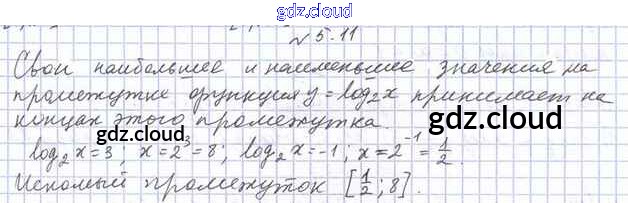 gdz.cloud
№ 5.11
Свои наибольшее и наименьшее значения на
промежутке функция y = log₂x принимает на
концах этого промежутка.
gdz.cloud
gdz.cloud
log₂x = 3; x = 2³ = 8; log₂x = -1; x = 2⁻¹ = 1/2.
Искомый промежуток [1/2; 8].
gdz.cloud